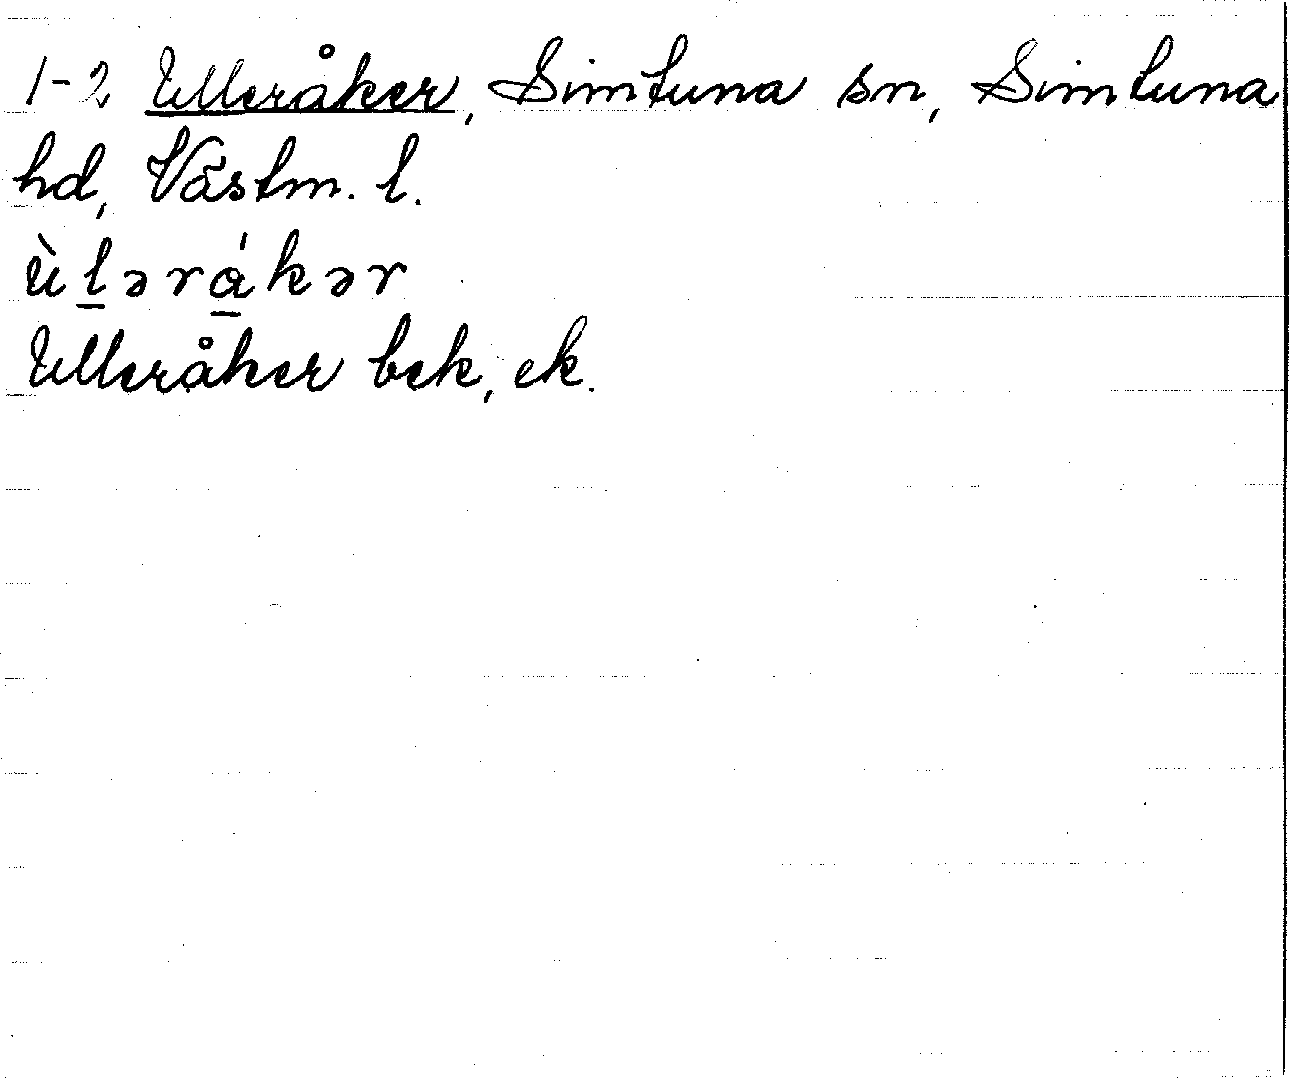 1-2 Ulleråker, Simtuna sn, Simtuna
hd, Västm. l.
ùl̲ərά̲kər
Ulleråker bek, ek.